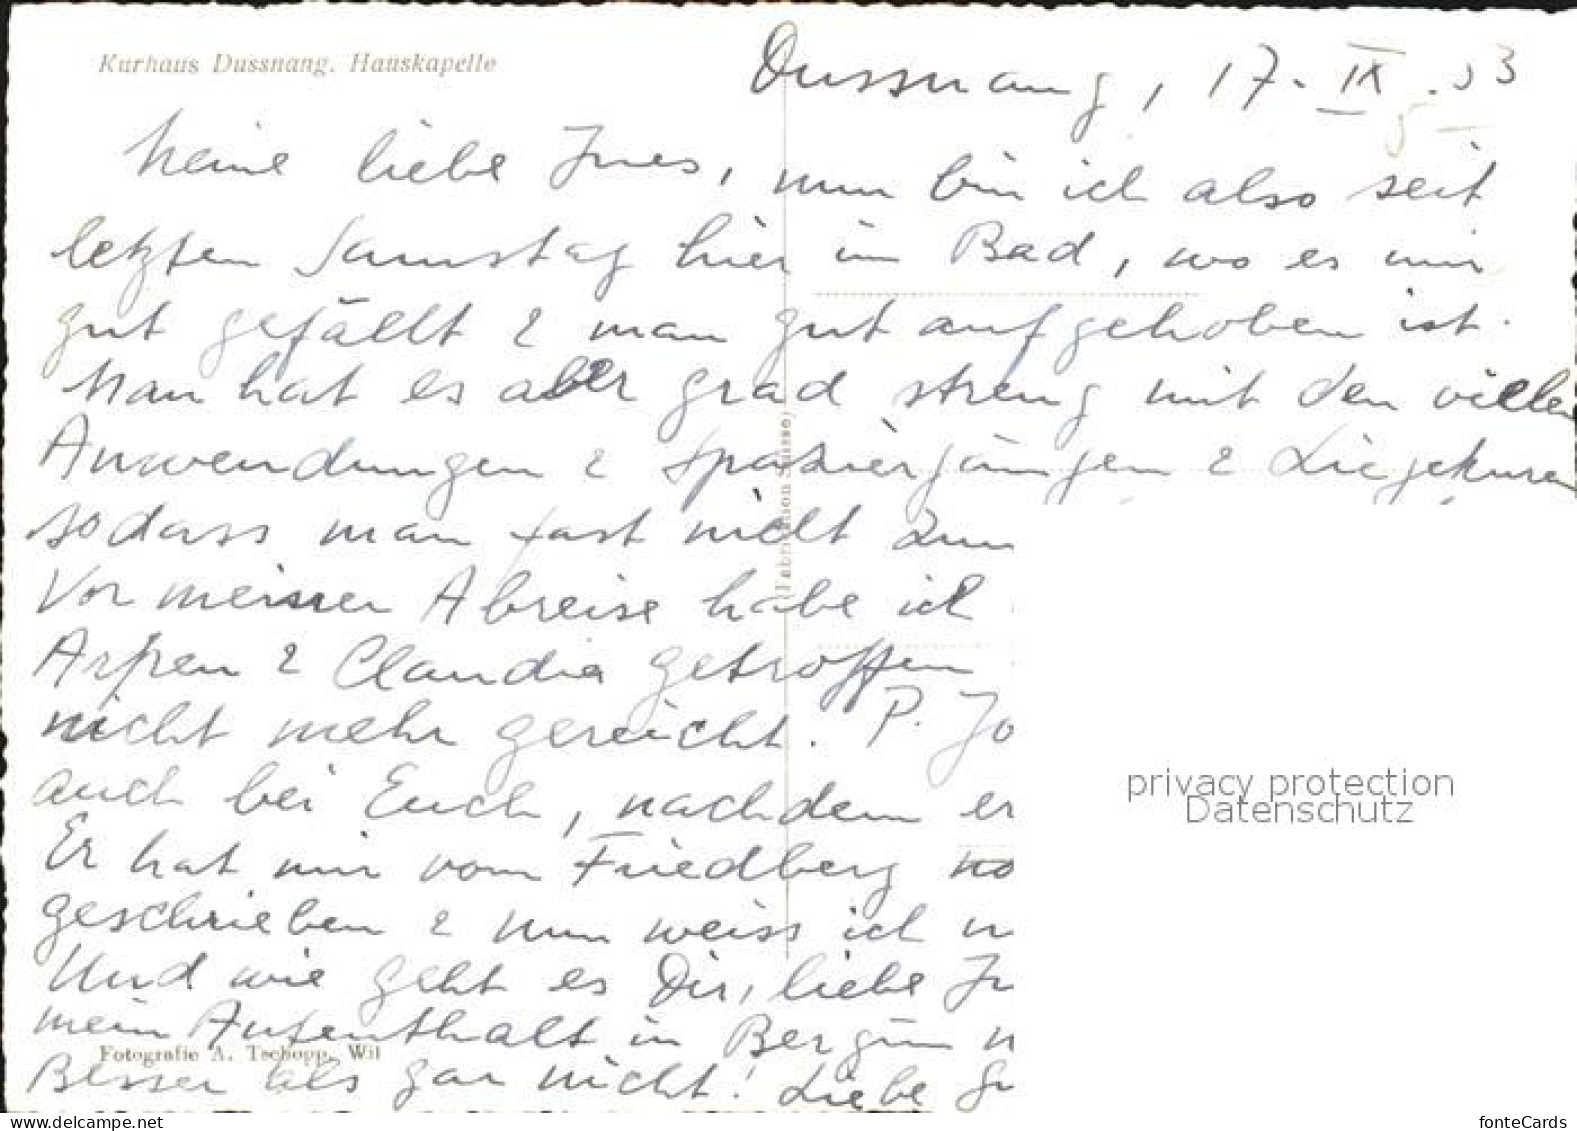 Kurhaus Dussnang. Hauskapelle
Dussnang, 17. IX. 53
Meine liebe Ines, nun bin ich also seit
letzten Samstag hier im Bad, wo es mir
gut gefällt & man gut aufgehoben ist.
Man hat es aber grad streng mit den vielen
Anwendungen & Spaziergängen & Liegekuren
sodass man fast nicht zum
Vor meiner Abreise habe ich
& Claudia getroffen
nicht mehr gereicht. P. Jo
auch bei Euch, nachdem er
Er hat mir vom Friedberg no
geschrieben & nun weiss ich n
Und wie geht es Dir, liebe In
mein Aufenthalt in Bergün n
Besser als gar nicht! Liebe Gr
Fotografie A. Tschopp, Wil
(Fabrication Suisse)
privacy protection
Datenschutz
www.delcampe.net
fonteCards